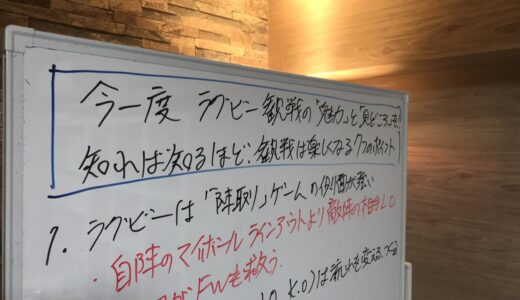 今一度 ラグビー観戦の「魅力」と「見どころ」を!
知れば知るほど、観戦は楽しくなる7つのポイント
1. ラグビーは「陣取り」ゲームの側面が強い
・自陣のマイボールラインアウトより敵陣の相手LO
がFWを救う.
K.O)は流れを変える